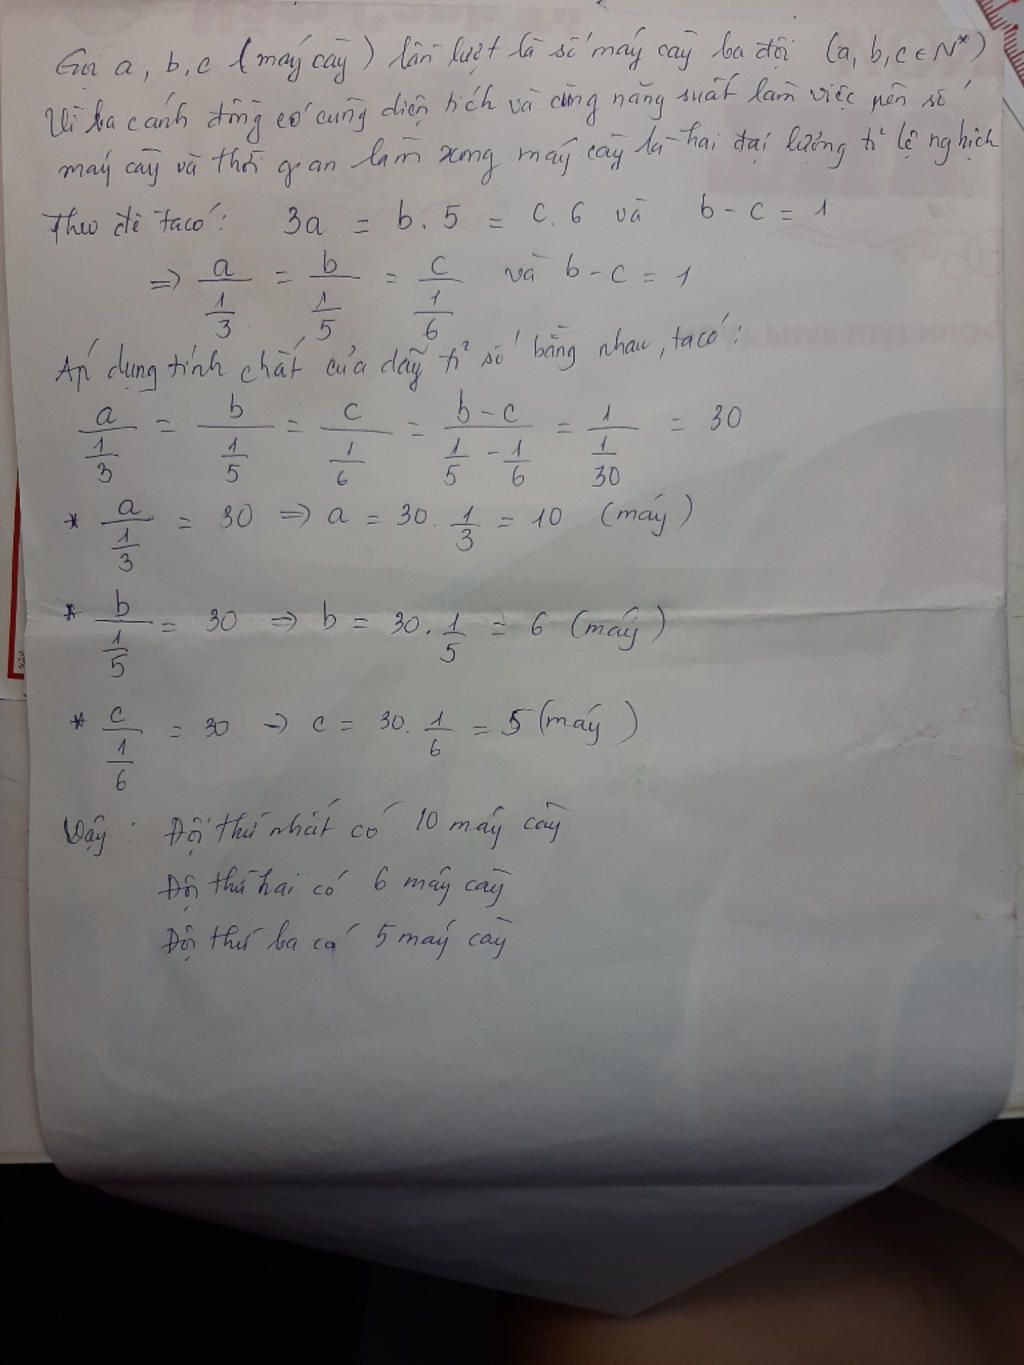 Gọi a, b, c (máy cày) lần lượt là số máy cày ba đội (a, b, c ∈ N*)
Vì ba cánh đồng có cùng diện tích và cùng năng suất làm việc nên số
máy cày và thời gian làm xong máy cày là hai đại lượng tỉ lệ nghịch
Theo đề ta có: 3a = b. 5 = c. 6 và b - c = 1
=> a/(1/3) = b/(1/5) = c/(1/6) và b - c = 1
Áp dụng tính chất của dãy tỉ số bằng nhau, ta có:
a/(1/3) = b/(1/5) = c/(1/6) = (b - c)/(1/5 - 1/6) = 1/(1/30) = 30
* a/(1/3) = 30 => a = 30. 1/3 = 10 (máy)
* b/(1/5) = 30 => b = 30. 1/5 = 6 (máy)
* c/(1/6) = 30 -> c = 30. 1/6 = 5 (máy)
Vậy: Đội thứ nhất có 10 máy cày
Đội thứ hai có 6 máy cày
Đội thứ ba có 5 máy cày